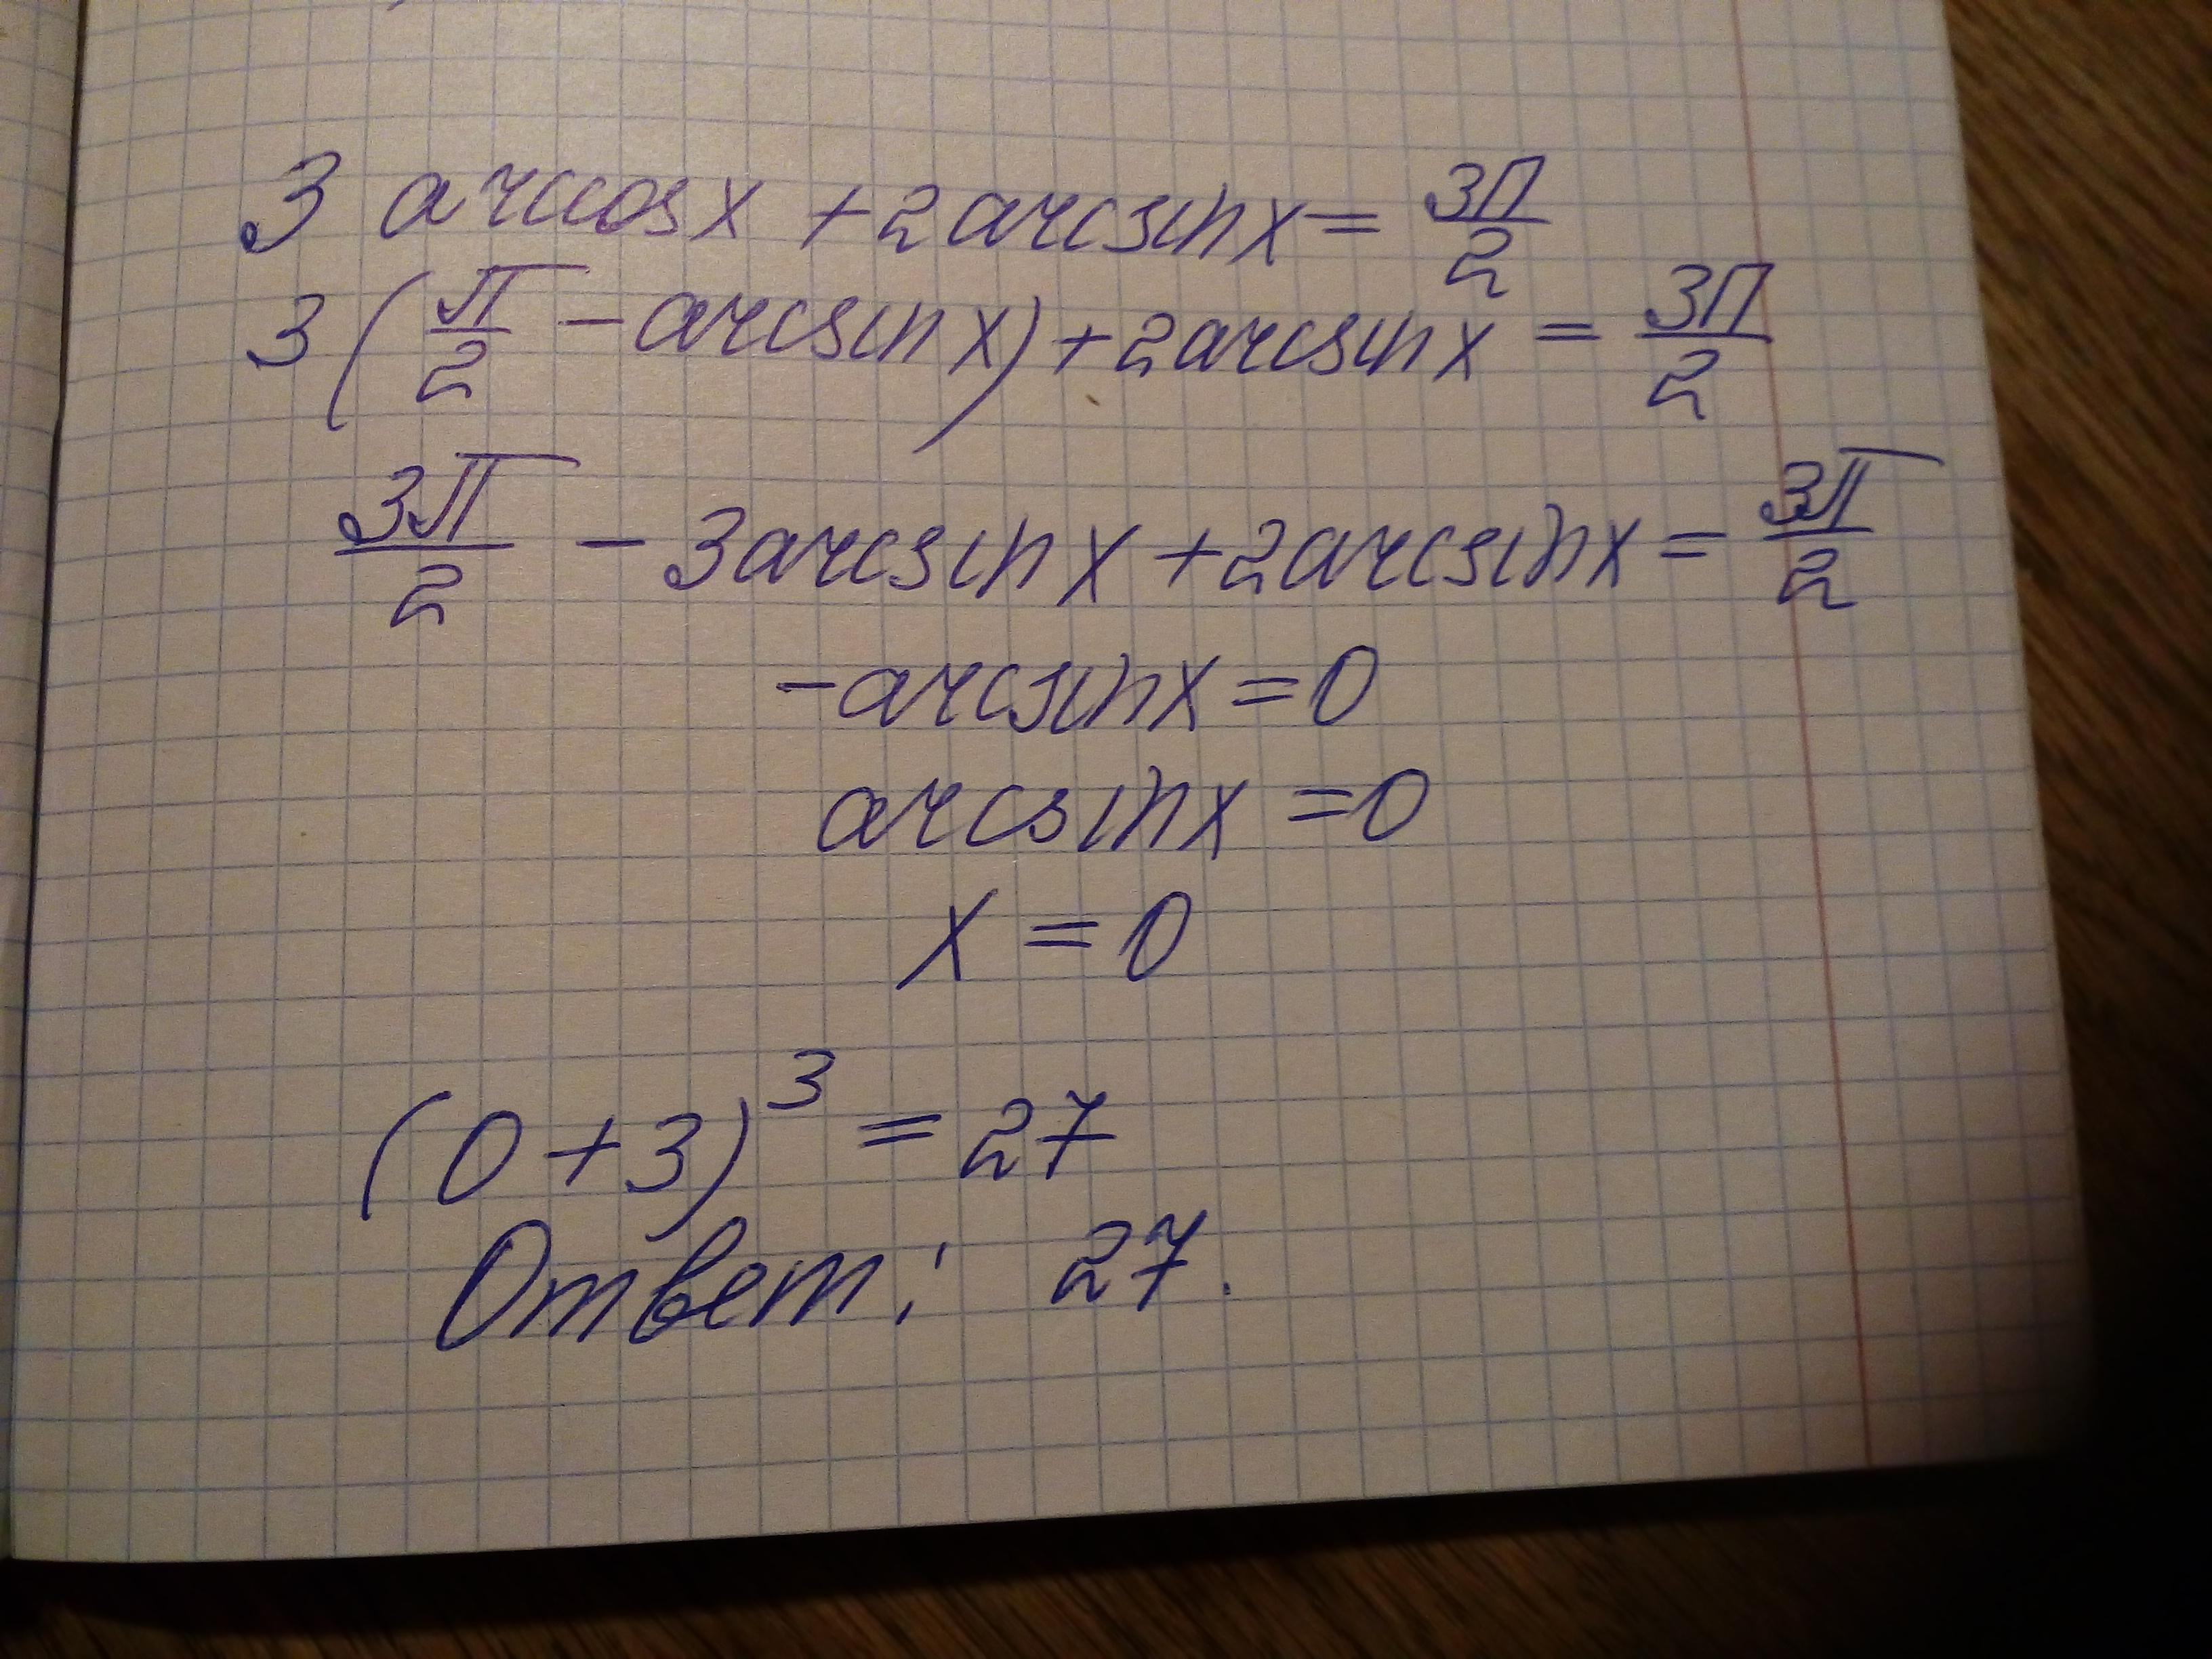 3 arccosx + 2arcsinx = 3π/2
3(π/2 - arcsinx) + 2arcsinx = 3π/2
3π/2 - 3arcsinx + 2arcsinx = 3π/2
-arcsinx = 0
arcsinx = 0
x = 0
(0 + 3)³ = 27
Ответ: 27.